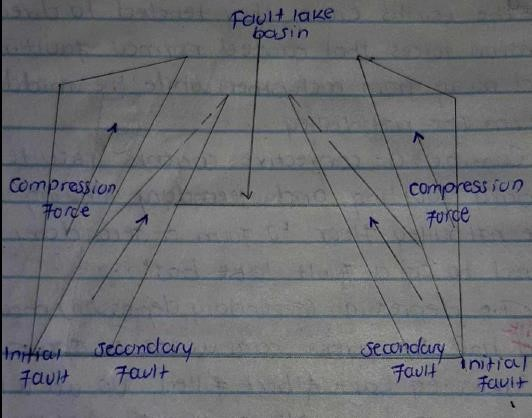 Fault lake
basin
Compression
Force
compression
Force
Initial
Fault
secondary
Fault
secondary
Fault
Initial
Fault